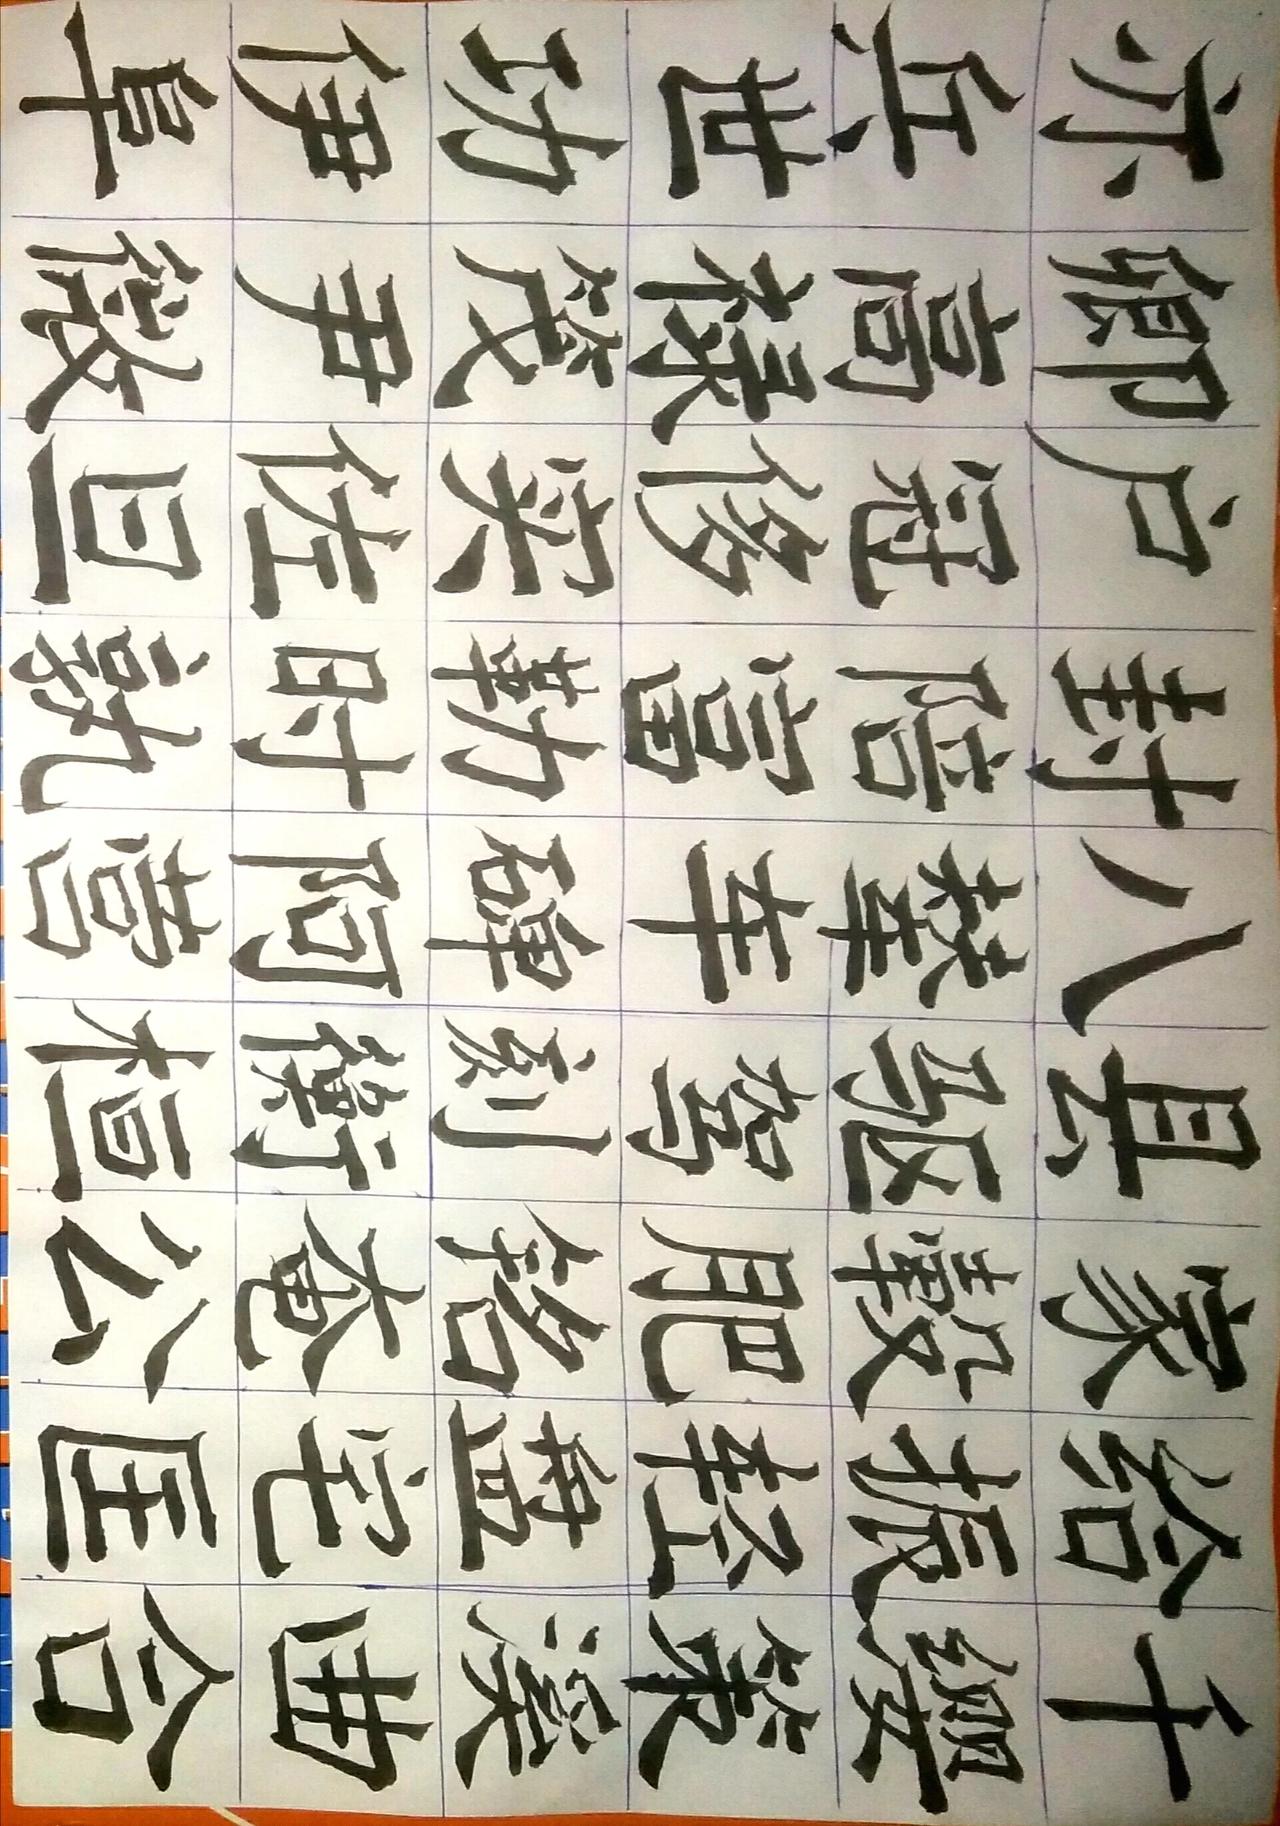 亦卿户封八县家给千
兵高冠陪辇驱毂振缨
世禄侈富车驾肥轻策
功茂实勒碑刻铭盘溪
伊尹佐时阿衡奄宅曲
阜微旦孰营桓公匡合